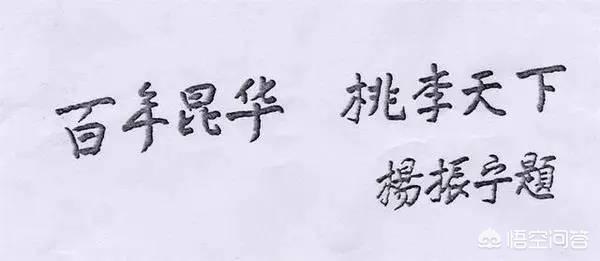 百年昆华 桃李天下
楊振宁題
悟空问答